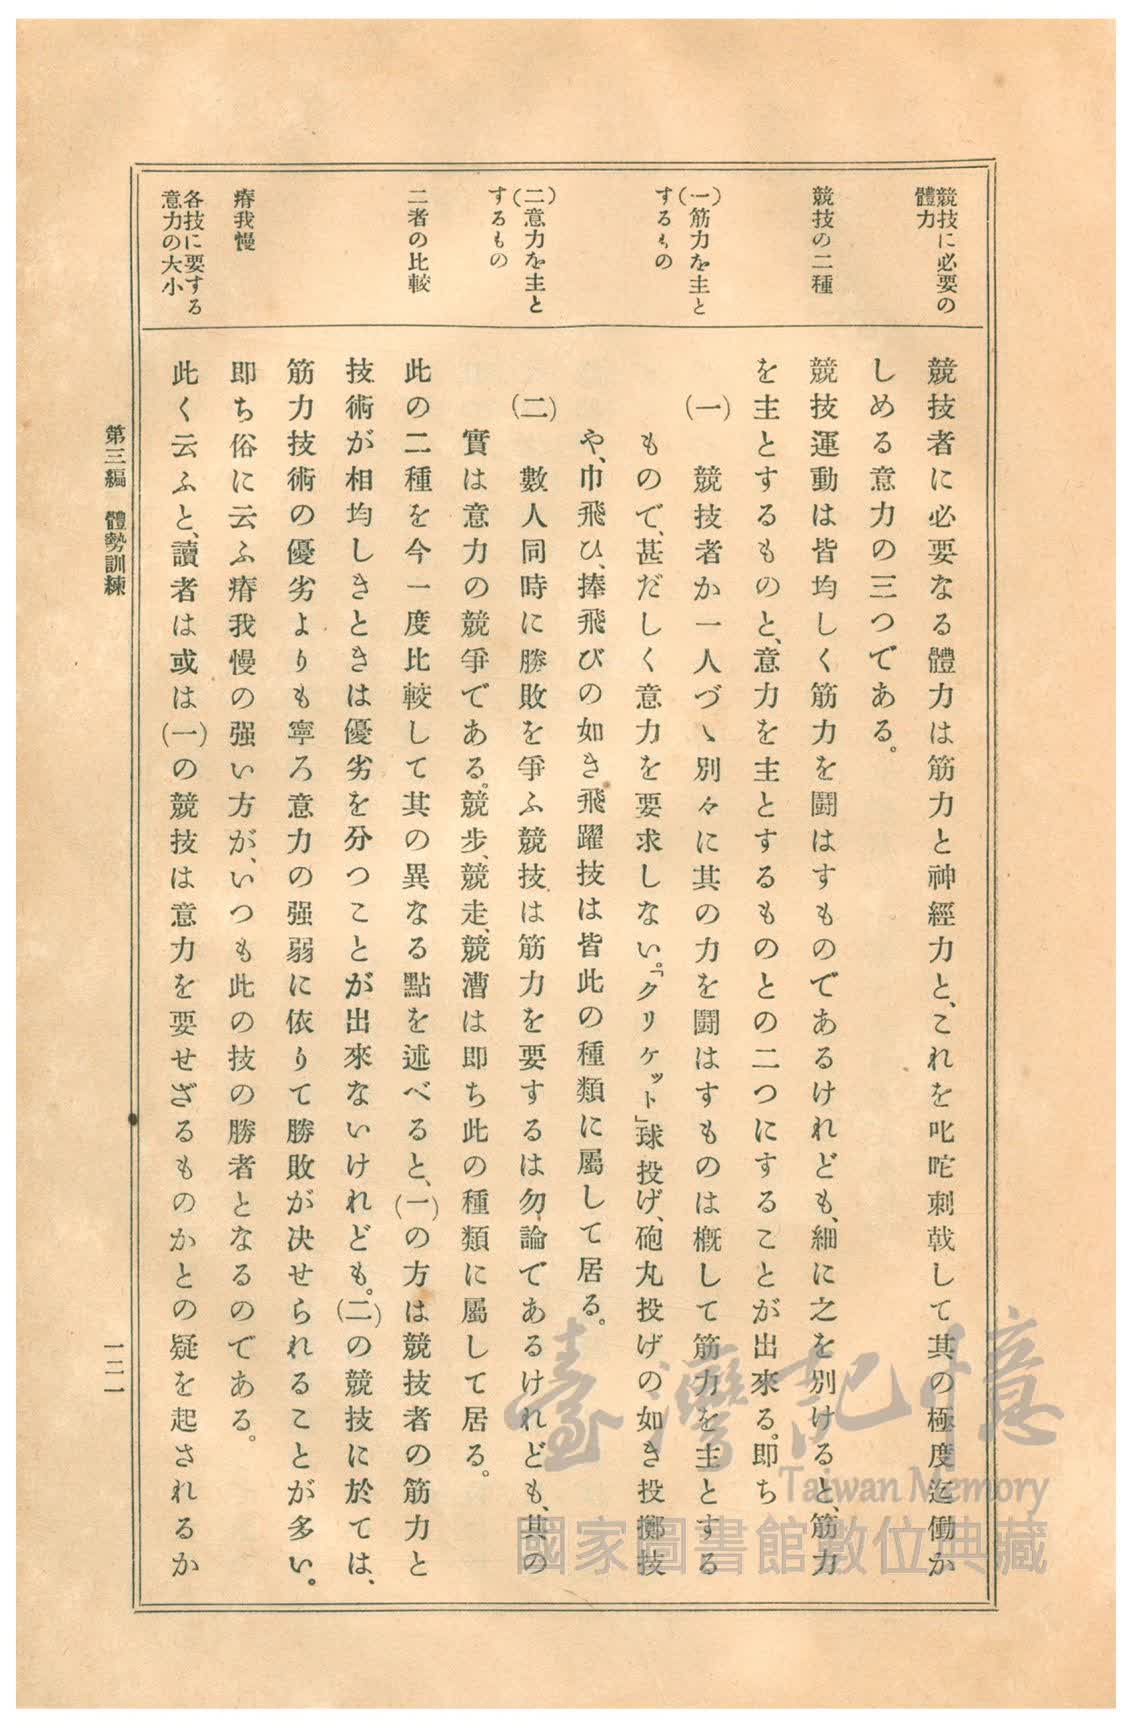 競技に必要の
體力
競技の二種
(一)筋力を主と
するもの
(二)意力を主と
するもの
二者の比較
瘠我慢
各技に要する
意力の大小
競技者に必要なる體力は筋力と神經力と、これを叱咤刺戟して其の極度迄働か
しめる意力の三つである。
競技運動は皆均しく筋力を鬪はすものであるけれども、細に之を別けると、筋力
を主とするものと、意力を主とするものとの二つにすることが出來る。即ち
(一) 競技者か一人づゝ別々に其の力を鬪はすものは概して筋力を主とする
もので、甚だしく意力を要求しない。「クリケット」球投げ、砲丸投げの如き投擲技
や、巾飛ひ、捧飛びの如き飛躍技は皆此の種類に屬して居る。
(二) 數人同時に勝敗を爭ふ競技は筋力を要するは勿論であるけれども、其の
實は意力の競爭である。競步、競走、競漕は即ち此の種類に屬して居る。
此の二種を今一度比較して其の異なる點を述べると、(一)の方は競技者の筋力と
技術が相均しきときは優劣を分つことが出來ないけれども。(二)の競技に於ては、
筋力技術の優劣よりも寧ろ意力の强弱に依りて勝敗が决せられることが多い。
即ち俗に云ふ瘠我慢の强い方が、いつも此の技の勝者となるのである。
此く云ふと、讀者は或は(一)の競技は意力を要せざるものかとの疑を起されるか
第三編 體勢訓練
一二一
臺灣記憶
Taiwan Memory
國家圖書館數位典藏